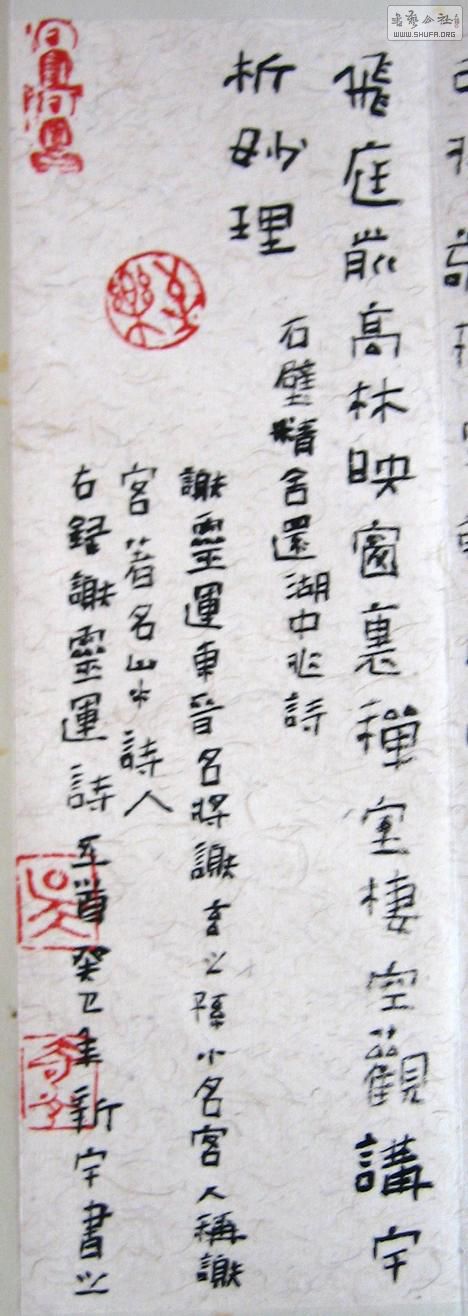 飛庭前高林映窗裏禪室棲空觀講宇
析妙理
石壁精舍還湖中作詩
謝靈運東晉名將謝玄之孫小名客人稱謝
客著名山水詩人
右錄謝靈運詩五首癸巳年新宇書之
書藝公社
WWW.SHUFA.ORG